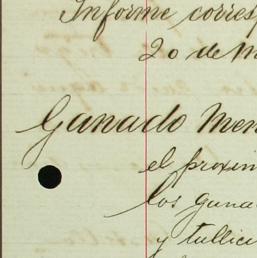 Informe corresp
20 de M
Ganado Men
el proxim
los gana
y tullici